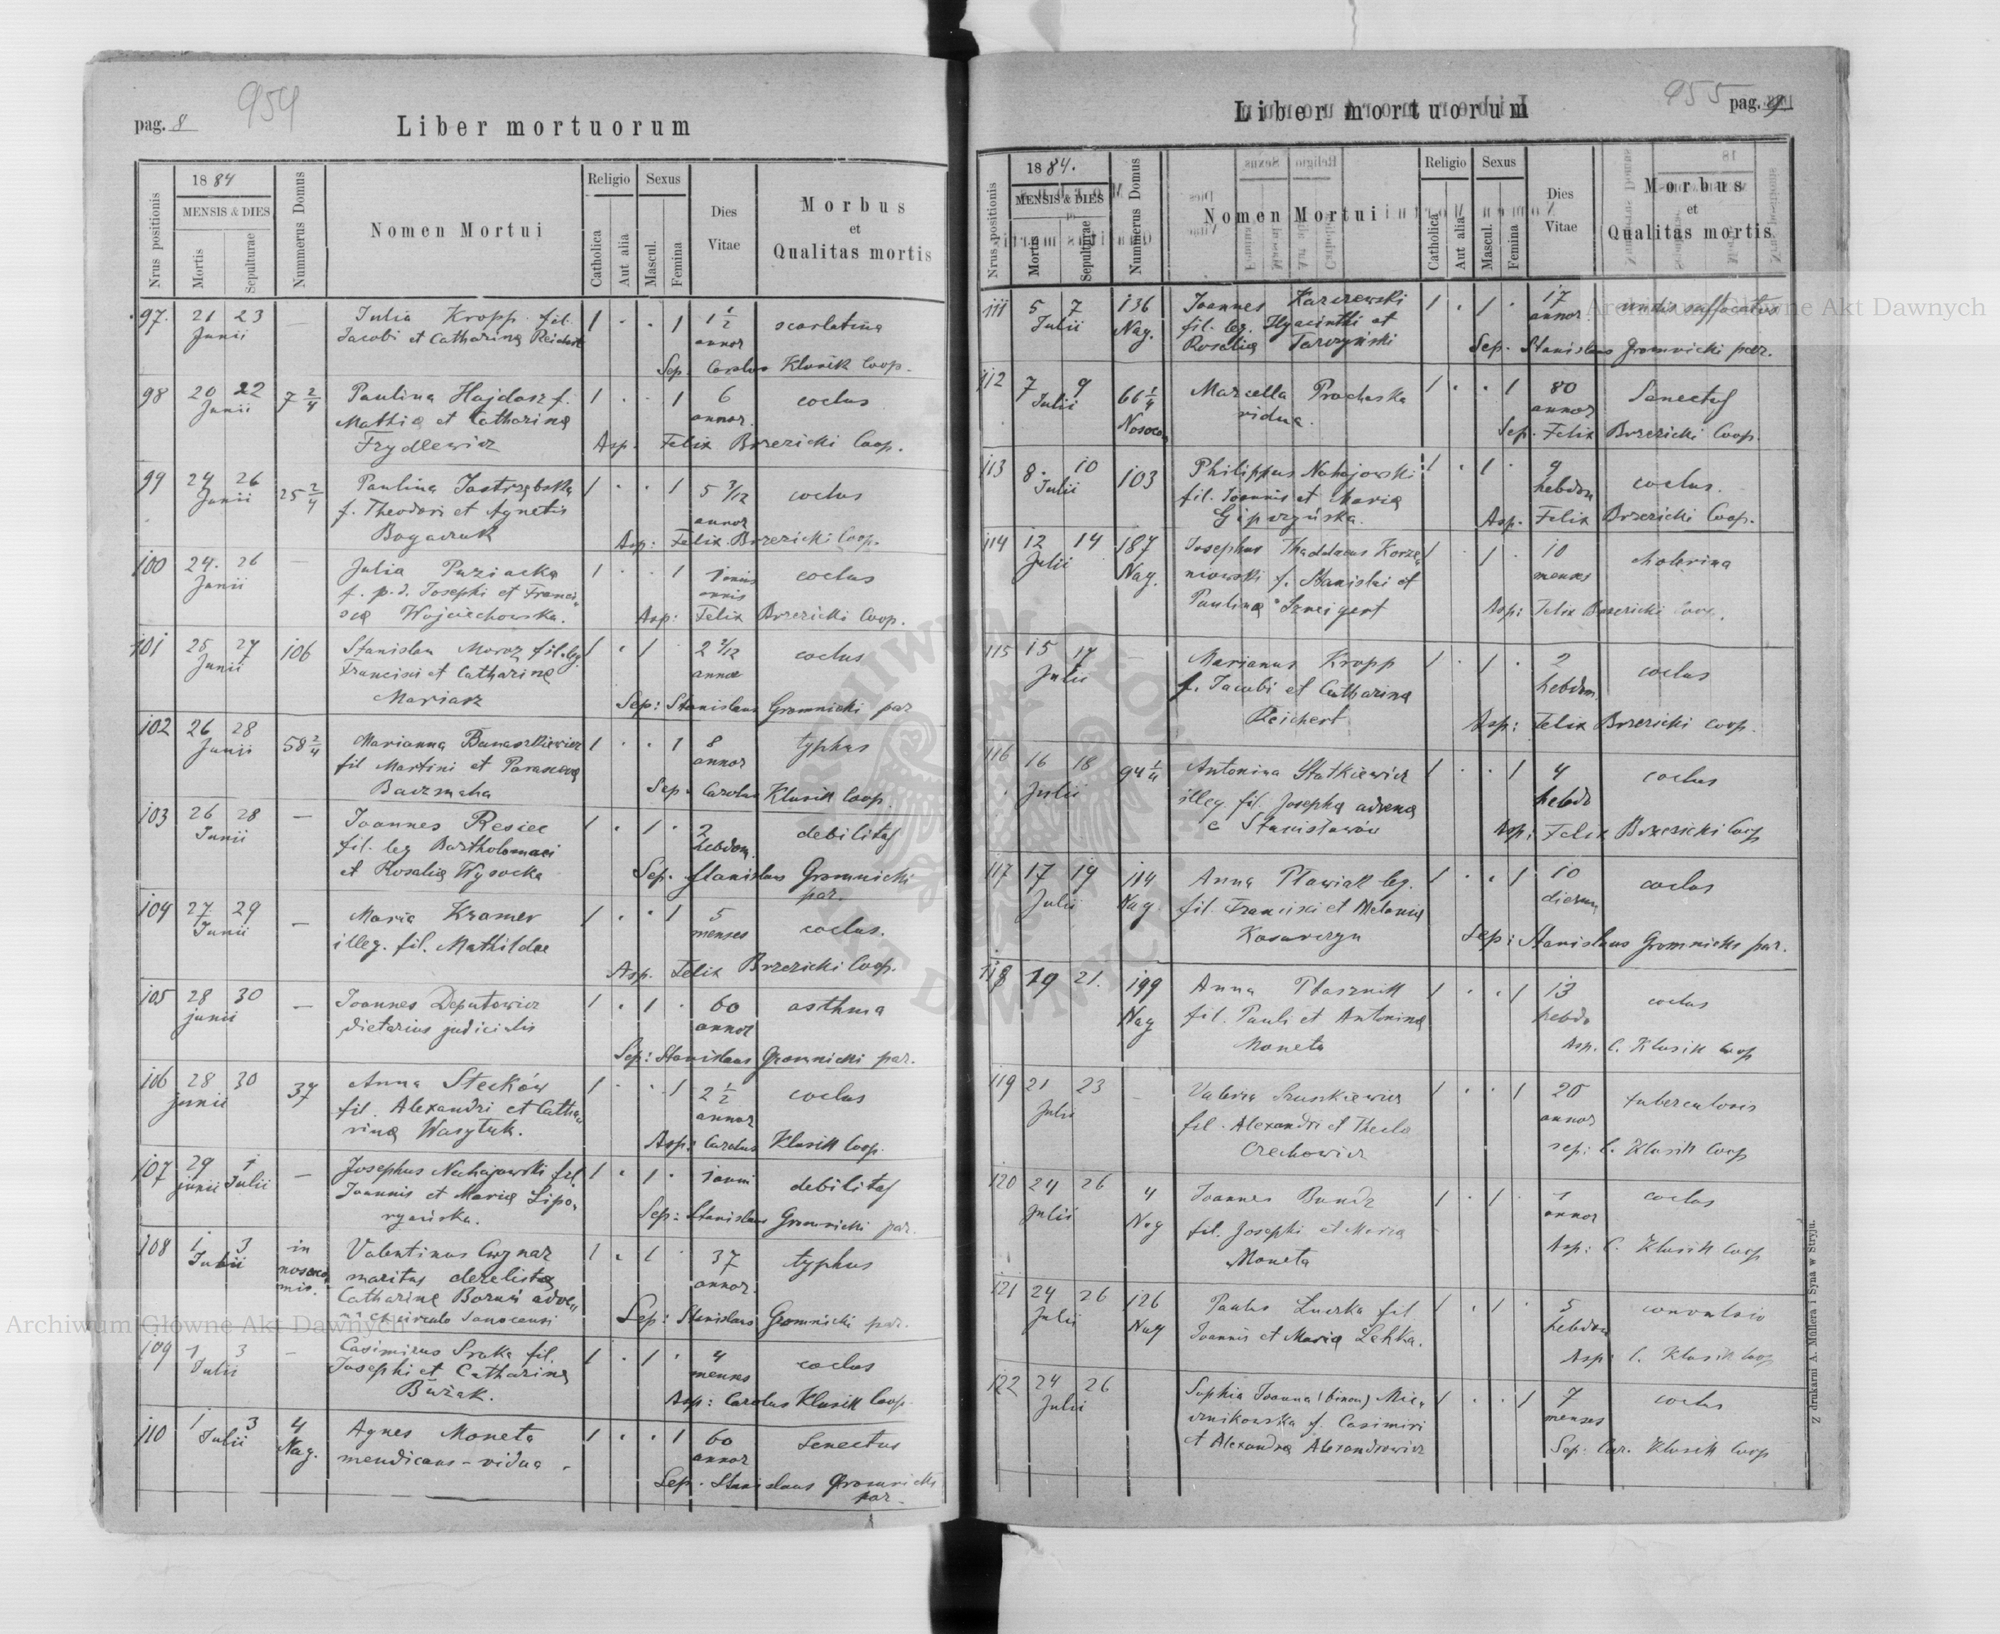 pag. 8
954
Liber mortuorum
Nrus positionis
1884
MENSIS & DIES
Mortis
Sepulturae
Nummerus Domus
Nomen Mortui
Religio
Catholica
Aut alia
Sexus
Mascul.
Femina
Dies Vitae
Morbus et Qualitas mortis
97. 21 23 Junii — Julia Kropp fil. 1 . . 1 1 1/2 annor scarlatina
Jacobi et Catharina Reichert
Sep. Carolus Klusik Coop.
98 20 22 Junii 7 2/4 Paulina Hajdasz f. 1 . . 1 6 annor. coclus
Mathia et Catharina
Frydlewicz Asp. Felix Brzezicki Coop.
99 24 26 Junii 25 2/4 Paulina Jastrzębska 1 . . 1 5 3/12 annor coclus
f. Theodori et Agnetis
Bogaczuk Asp: Felix Brzezicki Coop.
100 24. 26 Junii — Julia Puziacka 1 . . 1 1 annis coclus
f. p. d. Josephi et Franci
sca Wojciechowska. Asp: Felix Brzezicki Coop.
101 25 27 Junii 106 Stanislau Moroz fil. leg. 1 . 1 2 2/12 annor coclus
Francisci et Catharina
Mariasz Sep: Stanislaus Gromnicki par
102 26 28 Junii 58 2/4 Marianna Banaszkiewicz 1 . . 1 8 annor typhus
fil Martini et Parasceva
Baczmaha Sep. Carolus Klusik Coop.
103 26 28 Junii — Joannes Resiec 1 . 1 . 2 hebdom. debilitas
fil. leg Bartholomaei
et Rosalia Wysocka Sep. Stanislaus Gromnicki
par.
104 27 29 Junii — Maria Kramer 1 . . 1 5 menses coclus.
illeg. fil. Mathildae
Asp. Felix Brzezicki Coop.
105 28 30 junii — Joannes Deputowicz 1 . 1 . 60 annor asthma
dietarius judicialis
Sep: Stanislaus Gromnicki par.
106 28 30 junii 37 Anna Steckow 1 . . 1 2 1/2 annor coclus
fil. Alexandri et Catha
rina Wasytuk. Asp: Carolus Klusik Coop.
107 29 junii 1 Julii — Josephus Nahajowski fil. 1 . 1 . 1 anni debilitas
Joannis et Maria Lipo
ryańska. Sep: Stanislaus Gromnicki par.
108 1 3 Julii in nosoco mio. Valentinus Cwynar 1 . 1 37 annor. typhus
maritus derelictą
Catharina Boruń adve
na e circulo Sanocensi Sep: Stanislaus Gromnicki par.
109 1 3 Julii — Casimirus Sroka fil. 1 . 1 . 4 menses coclus
Josephi et Catharina
Bużak. Asp: Carolus Klusik Coop.
110 1 3 Julii 4 Nag. Agnes Moneta 1 . . 1 60 annor Senectus
mendicans - vidua.
Sep. Stanislaus Gromnicki
par.
955
pag. 9
Liber mortuorum
Nrus positionis
1884.
MENSIS & DIES
Mortis
Sepulturae
Nummerus Domus
Nomen Mortui
Religio
Catholica
Aut alia
Sexus
Mascul.
Femina
Dies Vitae
Morbus et Qualitas mortis
111 5 7 Julii 136 Nag. Joannes Karczewski 1 . 1 . 17 annor undis suffocatus
fil. leg. Hyacinthi et
Rosalia Tarczyński Sep. Stanislaus Gromnicki par.
112 7 9 Julii 66 1/4 Nosocom Marcella Prochaska 1 . . 1 80 annor Senectus
vidua. Sep. Felix Brzezicki Coop.
113 8. 10 Julii 103 Philippus Nahajowski 1 . 1 . 9 hebdom coclus.
fil. Joannis et Maria
Gipczyńska. Asp. Felix Brzezicki Coop.
114 12 14 Julii 187 Nag. Josephus Thaddaeus Korze 1 . 1 . 10 menses cholerina
niowski f. Stanislai et
Paulina Szneigert Asp: Felix Brzezicki Coop.
115 15 17 Julii — Marianus Kropp 1 . 1 . 2 hebdom coclus
f. Jacobi et Catharina
Reichert Asp: Felix Brzezicki Coop.
116 16 18 Julii 94 1/4 Antonina Statkiewicz 1 . . 1 4 hebdo coclus
illeg. fil. Josepha advena
e Stanisławów Asp: Felix Brzezicki Coop
117 17 19 Julii 114 Nag. Anna Pławiak leg. 1 . . 1 10 dierum coclus
fil. Francisci et Melania
Kosarczyn Sep: Stanislaus Gromnicki par.
118 19 21. 199 Nag Anna Ptasznik 1 . . 1 13 hebdo coclus
fil. Pauli et Antonina
Moneta Asp. C. Klusik Coop
119 21 23 Julii — Valeria Szuszkiewicz 1 . . 1 20 annor tuberculosis
fil. Alexandri et Thecla
Orechowicz sep: C. Klusik Coop
120 24 26 Julii 4 Nag Joannes Bundz 1 . 1 . 1 annor coclus
fil. Josephi et Maria
Moneta Asp: C. Klusik Coop
121 24 26 Julii 126 Nag Paulus Luczka fil 1 . 1 . 5 hebdom convulsio
Joannis et Maria Lekka. Asp: C. Klusik Coop
122 24 26 Julii Sophia Joanna (binom) Mie 1 . . 1 7 menses coclus
cznikowska f. Casimiri
et Alexandra Alexandrowicz Sep: Car. Klusik Coop
Z drukarni A. Müllera i Syna w Stryju.
Archiwum Główne Akt Dawnych
Archiwum Główne Akt Dawnych
ARCHIWUM GŁÓWNE AKT DAWNYCH